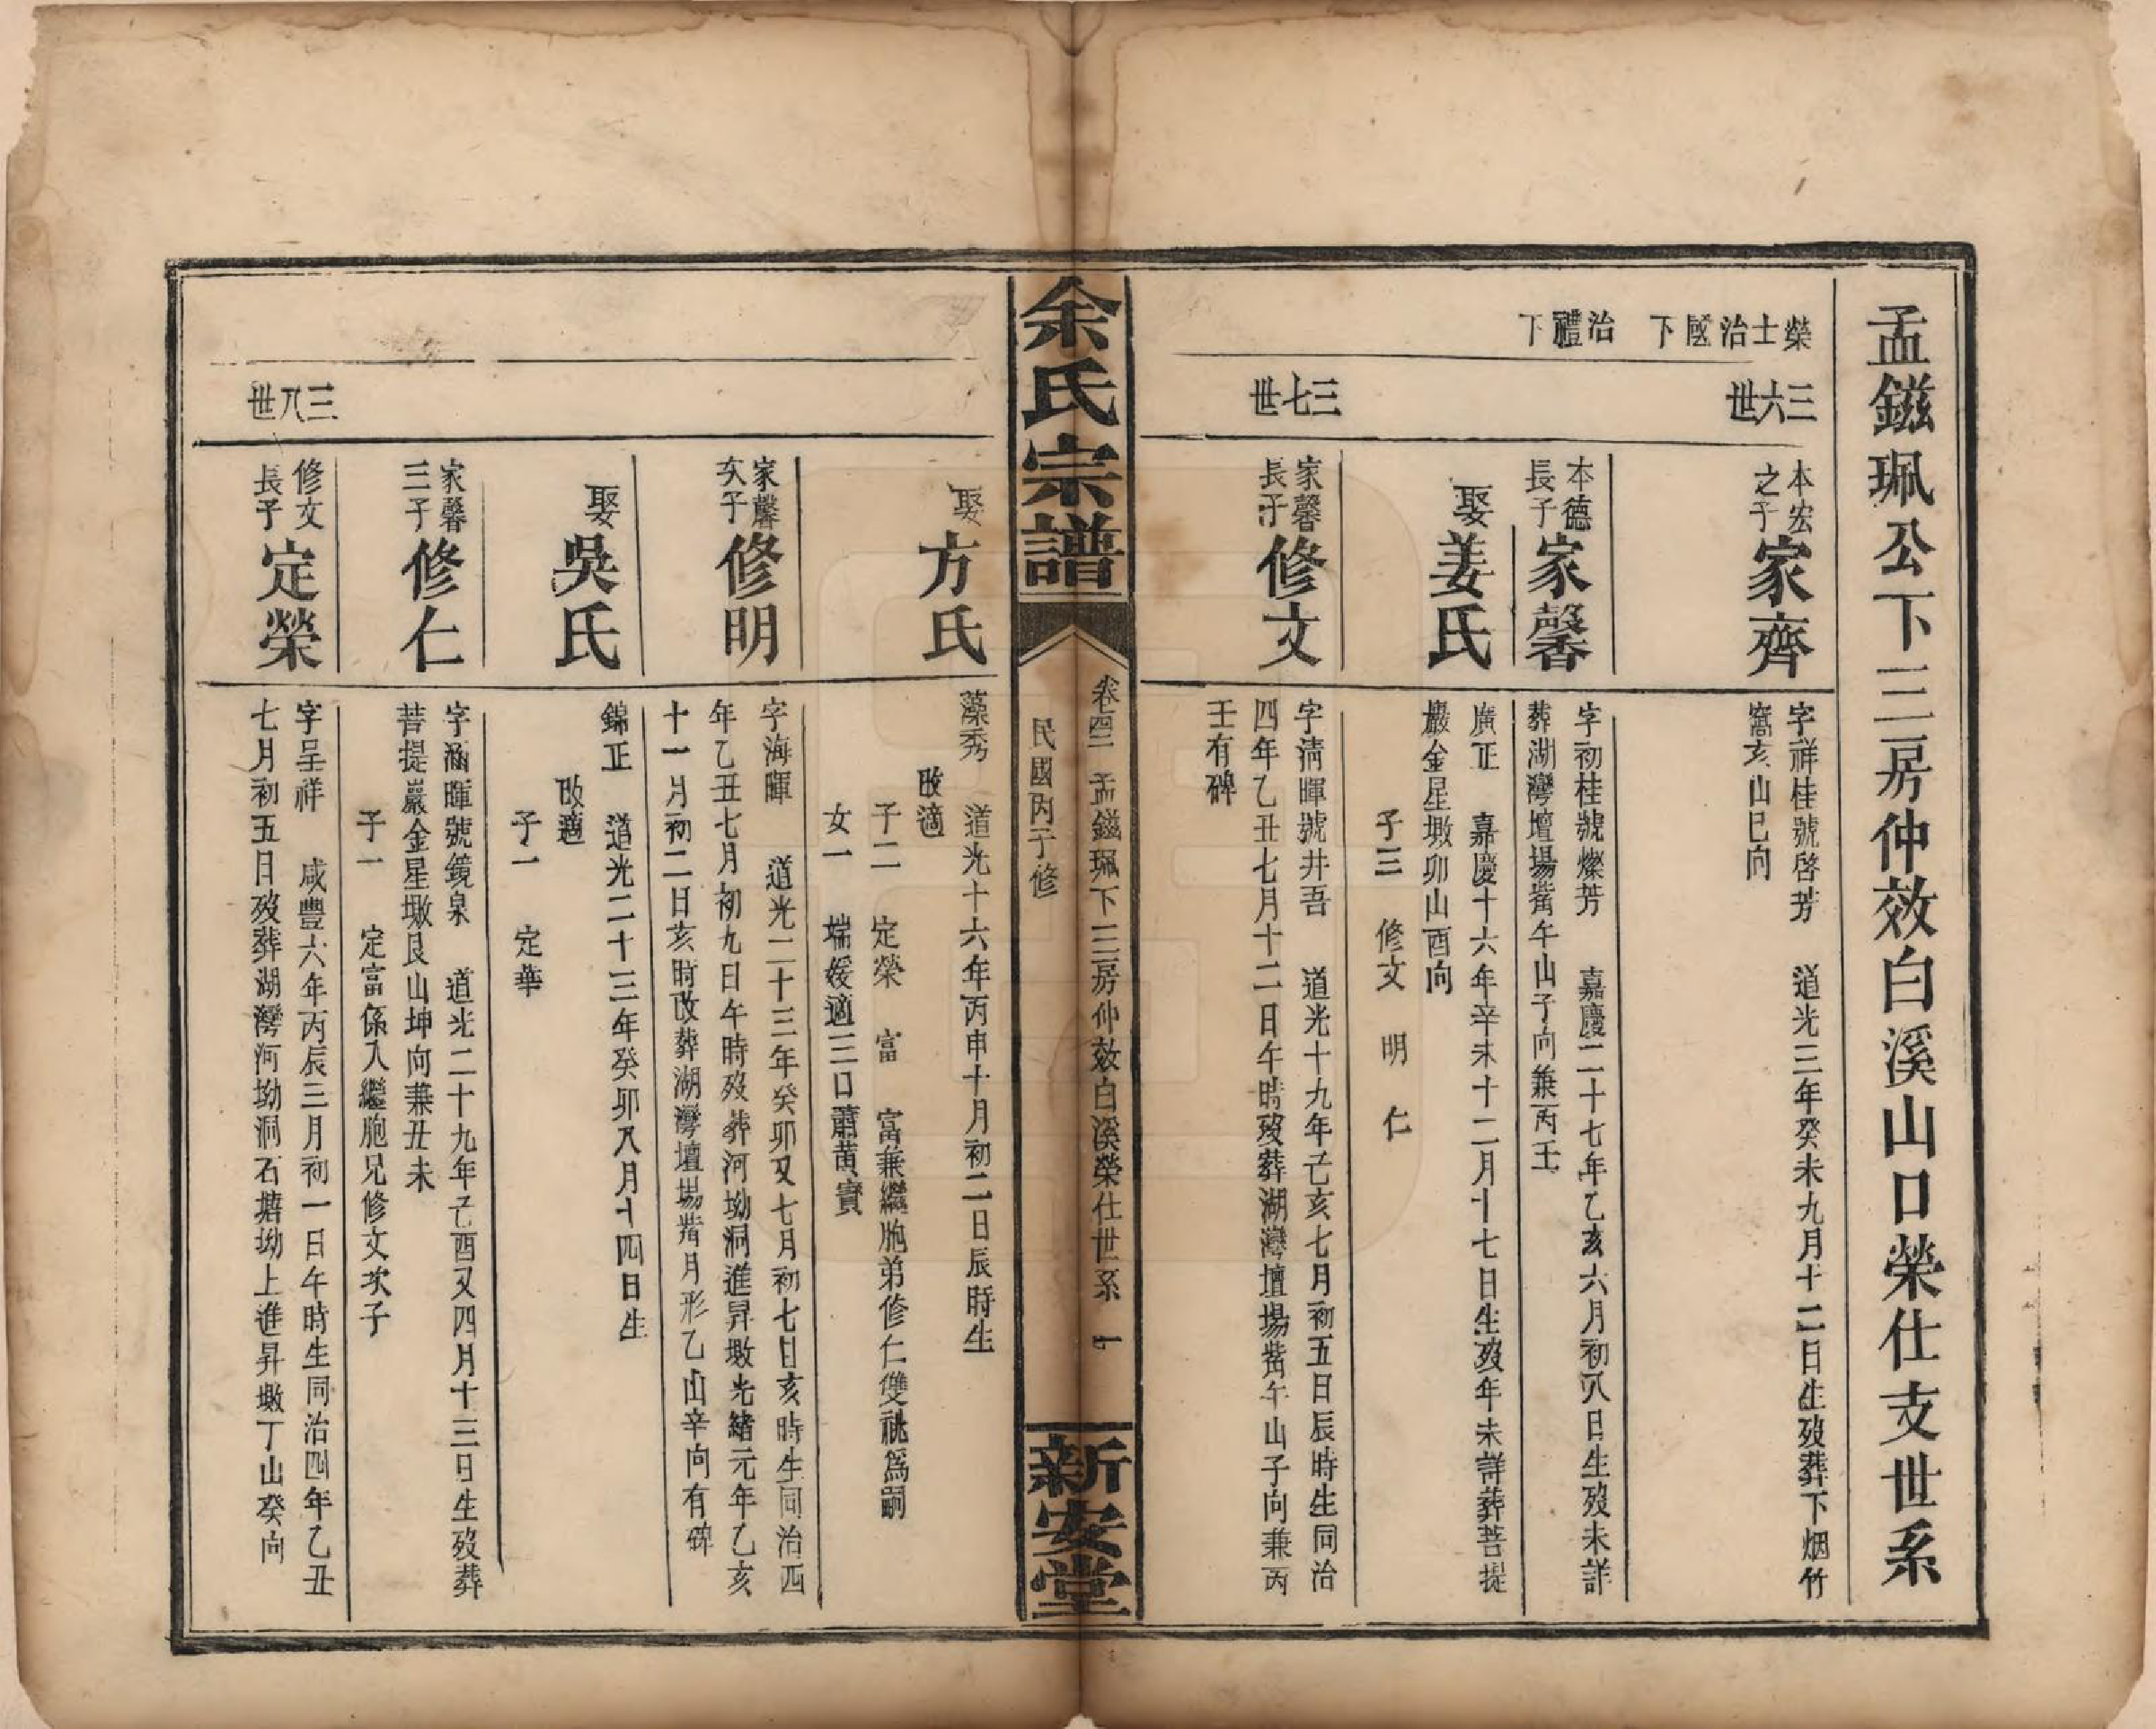 孟鎡珮公下三房仲效白溪山口榮仕支世系
榮士治國下
治禮下
三六世
本宏之子
家齊
字祥桂號啓芳　道光三年癸未九月十二日生歿葬下烟竹
窩亥山巳向
本德長子
家馨
字初桂號燦芳　嘉慶二十七年乙亥六月初八日生歿未詳
葬湖灣壇場嘴午山子向兼丙壬
娶
姜氏
廣正　嘉慶十六年辛未十二月十七日生歿年未詳葬菩提
巖金星墩卯山酉向
子三　修文　明　仁
三七世
家馨長子
修文
字清暉號井吾　道光十九年己亥七月初五日辰時生同治
四年乙丑七月十二日午時歿葬湖灣壇場嘴午山子向兼丙
壬有碑
余氏宗譜
卷四　孟鎡珮下三房仲效白溪榮仕世系　一
民國丙子修
新安堂
娶
方氏
藻秀　道光十六年丙申十月初二日辰時生
改適
子二　定榮　富　富兼繼胞弟修仁雙祧爲嗣
女一　端媛適三口蕭黄寶
家馨次子
修明
字海暉　道光二十三年癸卯又七月初七日亥時生同治四
年乙丑七月初九日午時歿葬河坳洞進昇墩光緒元年乙亥
十一月初二日亥時改葬湖灣壇場嘴月形乙山辛向有碑
娶
吳氏
錦正　道光二十三年癸卯八月十四日生
改適
子一　定華
家馨三子
修仁
字涵暉號鏡泉　道光二十九年己酉又四月十三日生歿葬
菩提巖金星墩艮山坤向兼丑未
子一　定富係入繼胞兄修文次子
三八世
修文長子
定榮
字呈祥　咸豐六年丙辰三月初一日午時生同治四年乙丑
七月初五日歿葬湖灣河坳洞石塘坳上進昇墩丁山癸向